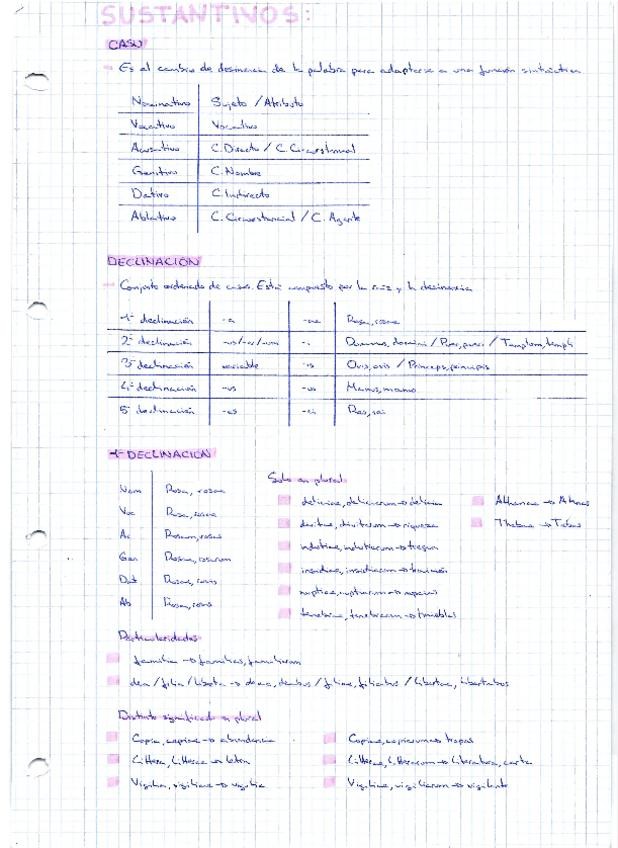 SUSTANTIVOS:
CASO
- Es el cambio de desinencia de la palabra para adaptarse a una función sintáctica
Nominativo Sujeto / Atributo
Vocativo Vocativo
Acusativo C. Directo / C. Circunstancial
Genitivo C. Nombre
Dativo C. Indirecto
Ablativo C. Circunstancial / C. Agente
DECLINACIÓN
- Conjunto ordenado de casos. Está compuesto por la raíz y la desinencia
1ª declinación -a -ae Rosa, rosae
2ª declinación -us/-er/-um -i Dominus, domini / Puer, pueri / Templum, templi
3ª declinación variable -is Ovis, ovis / Princeps, principis
4ª declinación -us -us Manus, manus
5ª declinación -es -ei Res, rei
1ª DECLINACIÓN
Nom Rosa, rosae
Voc Rosa, rosae
Ac Rosam, rosas
Gen Rosae, rosarum
Dat Rosae, rosis
Ab Rosa, rosis
Solo en plural
deliciae, deliciarum → delicia
divitiae, divitiarum → riqueza
indutiae, indutiarum → tregua
insidiae, insidiarum →
nuptiae, nuptiarum → nupcias
tenebrae, tenebrarum → tinieblas
Athenae → Atenas
Thebae → Tebas
Particularidades
familia → familias, familiarum
dea / filia / liberta → deae, deabus / filiae, filiabus / libertae, libertabus
Distinto significado en plural
Copia, copiae → abundancia
Littera, litterae → letra
Vigilia, vigiliae → vigilia
Copiae, copiarum → tropas
Litterae, litterarum → literatura, carta
Vigiliae, vigiliarum → vigilante